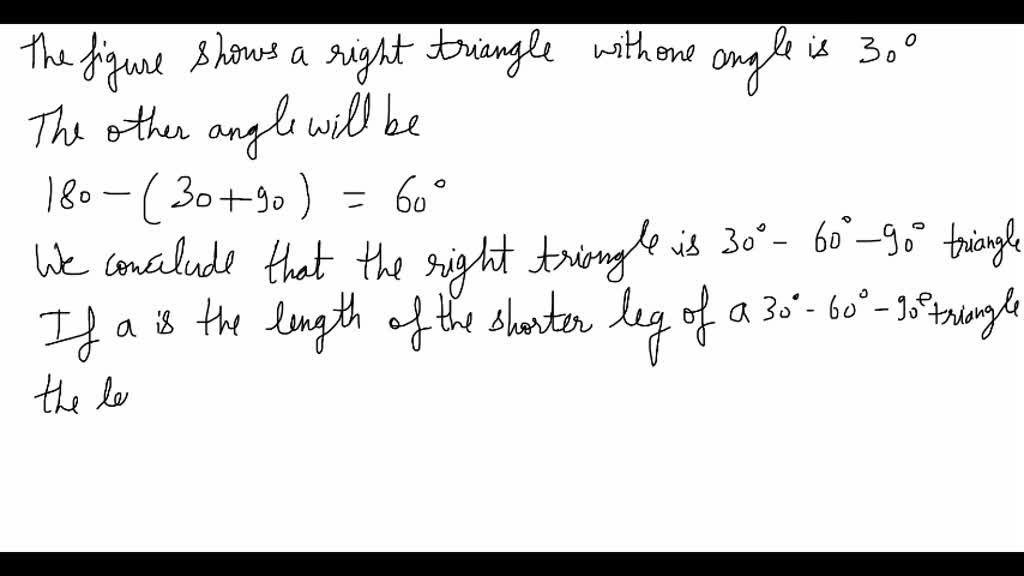 The figure shows a right triangle with one angle is 30°
The other angle will be
180 - (30+90) = 60°
We conclude that the right triangle is 30° - 60° - 90° triangle
If a is the length of the shorter leg of a 30° - 60° - 90° triangle
the le